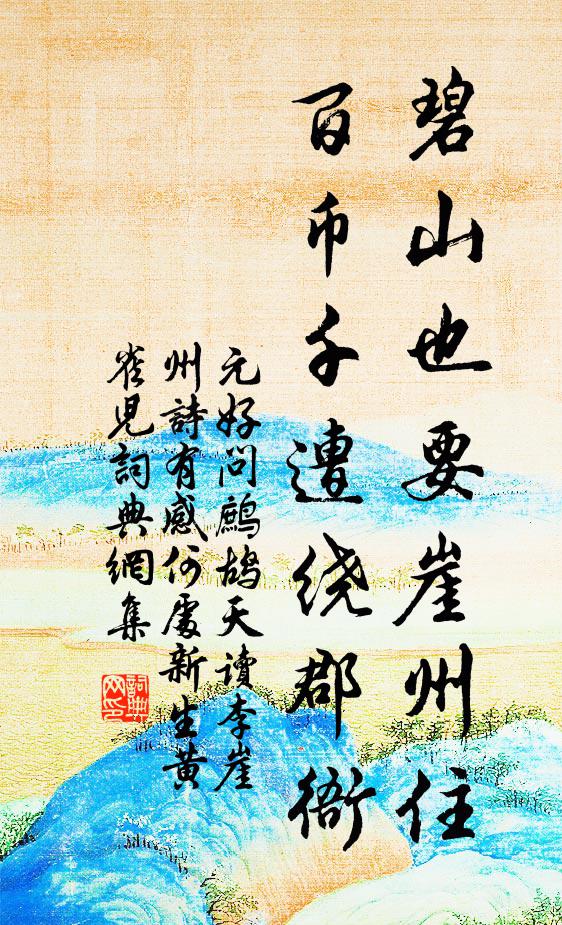 碧山也要崖州住
百币千遭绕郡衙
元好问鹧鸪天读李崖
州詩有感何處新生黄
雀児詞典網集
詞典网印